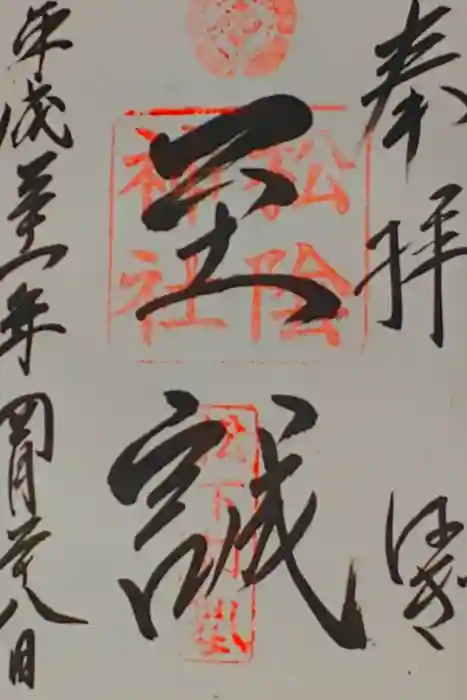 奉拝
はぎ
至誠
松陰
神社
松下村塾
平成三十一年四月二十八日